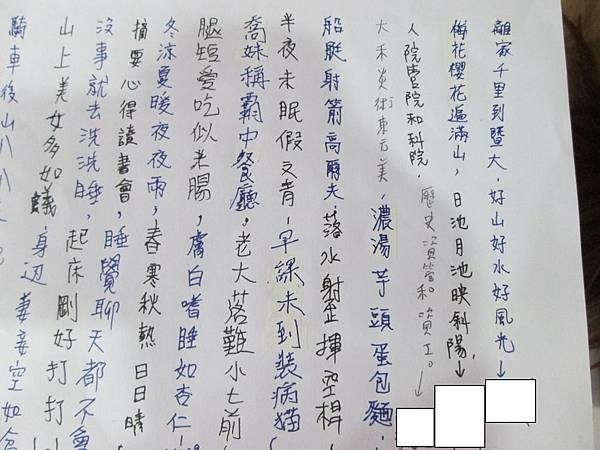 離家千里到暨大,好山好水好風光↓
梅花櫻花遍滿山,日池月池映斜陽,↓
人院管院和科院,歷史資管和資工。↓
大禾炎術東石美,濃湯芋頭蛋包麵,
船艇射箭高爾夫落水射歪揮空桿,
半夜未眠假文青,早課未到裝病貓(
喬妹稱霸中餐廳,老大落難小七前
腿短愛吃似米腸,膚白嗜睡如杏仁
冬涼夏暖夜夜雨,春寒秋熱日日晴
摘要心得讀書會,睡覺聊天都不會
沒事就去洗洗睡,起床剛好打打
山上美女多如蟻,身邊妻妾空如
騎車後山